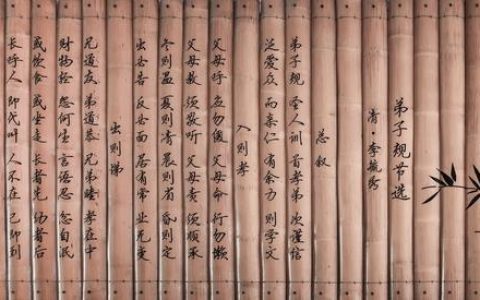 弟子规节选
清·李毓秀
总叙
弟子规 圣人训 首孝弟 次谨信
泛爱众 而亲仁 有余力 则学文
入则孝
父母呼 应勿缓 父母命 行勿懒
父母教 须敬听 父母责 须顺承
冬则温 夏则凊 晨则省 昏则定
出必告 反必面 居有常 业无变
出则悌
兄道友 弟道恭 兄弟睦 孝在中
财物轻 怨何生 言语忍 忿自泯
或饮食 或坐走 长者先 幼者后
长呼人 即代叫 人不在 己即到